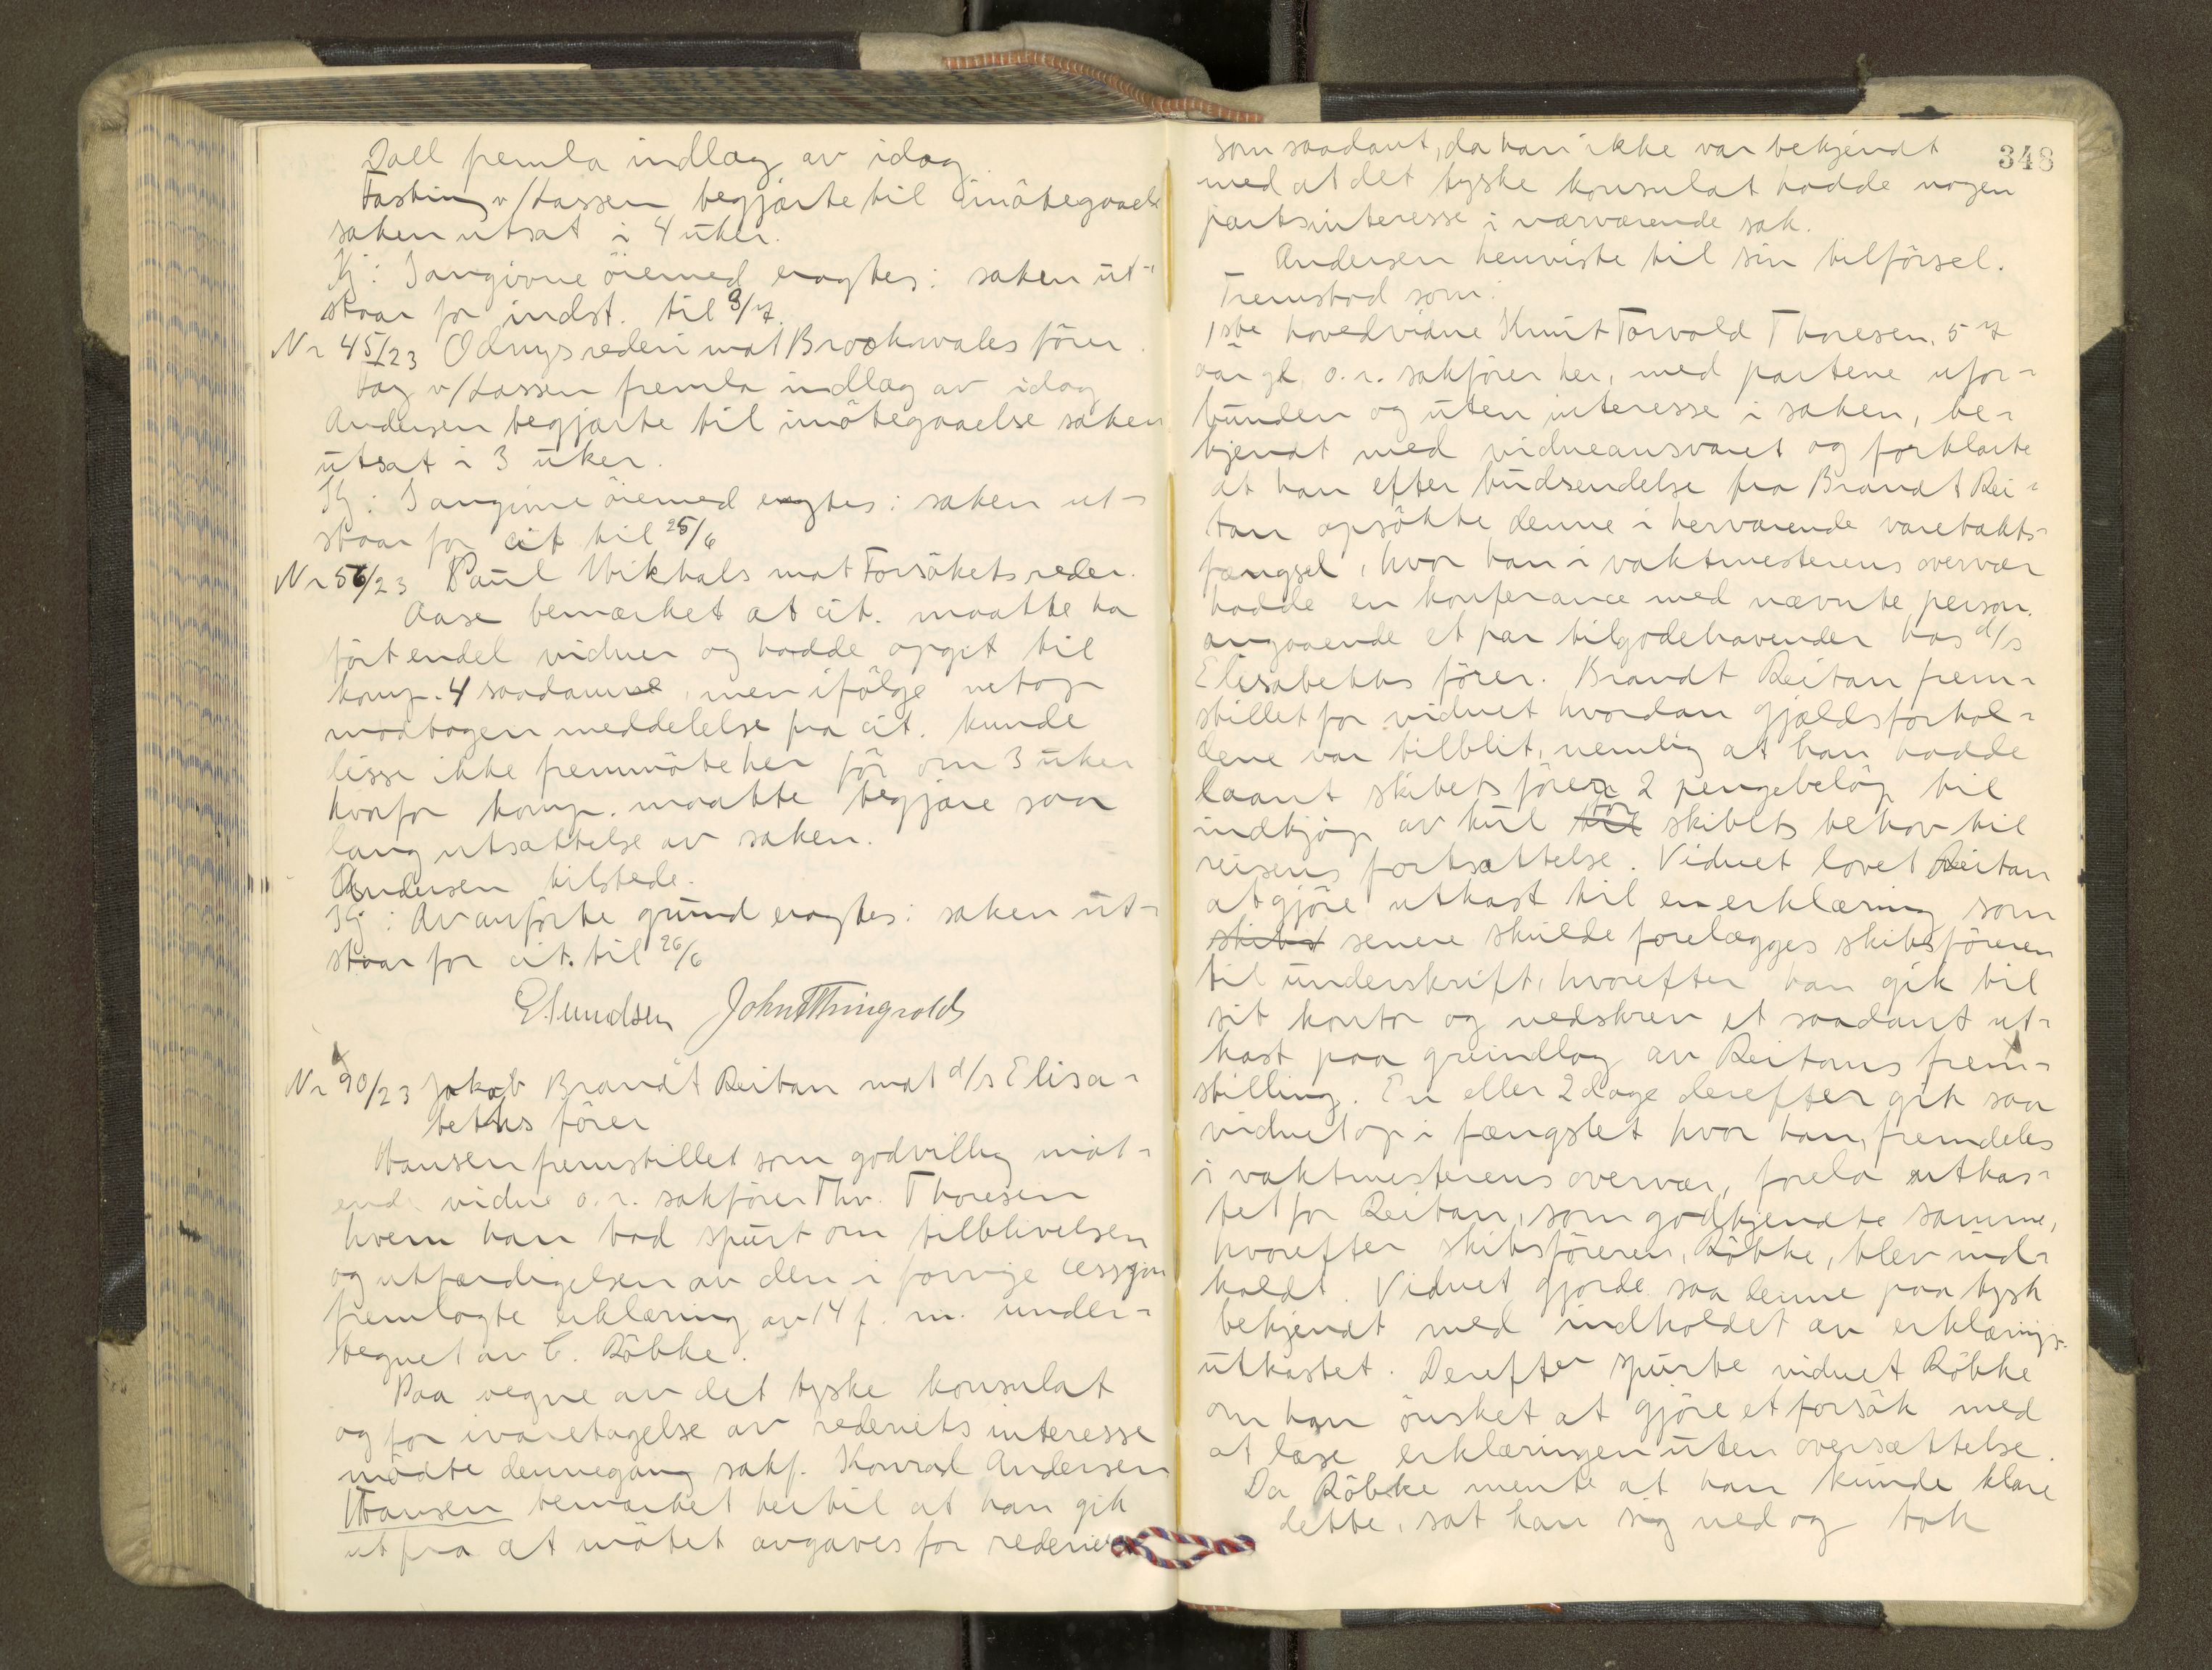 Dall fremla indlæg av idag
Fasting v/Lassen begjærte til imötegaaelse
saken utsat i 4 uker.
Kj: I angivne öiemed eragtes: saken ut-
staar for indst. til 3/7.
Nr 45/23 Odnys rederi mot Brockwales förer.
Fag v/Lassen fremla indlæg av idag
Andersen begjærte til imötegaaelse saken
utsat i 3 uker.
Kj: I angivne öiemed eragtes: saken ut-
staar for cit til 25/6
Nr 56/23 Paul Wikhals mot Forsökets reder.
Aase bemærket at cit. maatte ha
fört endel vidner og hadde opgit til
komp. 4 saadanne, men ifölge netop
modtagen meddelelse fra cit. kunde
disse ikke fremmöte her för om 3 uker
hvorfor komp. maatte begjære saa
lang utsættelse av saken.
Andersen tilstede.
Kj: Av anförte grund eragtes: saken ut-
staar for cit. til 26/6
E. Sundsen John Thingvold
Nr 90/23 Jakob Brandt Reitan mot d/s Elisa-
beths förer
Hansen fremstillet som godvillig möt-
end vidne o.r. sakförer Thv. Thoresen
hvem han bad spurt om tilblivelsen
og utfærdigelsen av den i forrige session
fremlagte erklæring av 14 f. m. under-
tegnet av C. Röbke.
Paa vegne av det tyske konsulat
og for ivaretagelse av rederiets interesse
mödte dennegang sakf. Konrad Andersen
Hansen bemærket hertil at han gik
ut fra at mötet avgaves for rederiet
348
som saadant, da han ikke var bekjendt
med at det tyske konsulat hadde nogen
partsinteresse i nærværende sak.
Andersen henviste til sin tilförsel.
Fremstod som:
1ste hovedvidne Knut Torvald Thoresen, 57
aar gl. o.r. sakförer her, med partene ufor-
bunden og uten interesse i saken, be-
kjendt med vidneansvaret og forklarte
at han efter budsendelse fra Brandt Rei-
tan opsökte denne i herværende varetækts-
fængsel, hvor han i vaktmesterens overvær
hadde en konferance med nævnte person.
angaaende et par tilgodehavender hos d/s
Elisabeths förer. Brandt Reitan frem-
stillet for vidnet hvordan gjældsforhol-
dene var tilblit, nemlig at han hadde
laant skibets förer 2 pengebelöp til
indkjöp av kul til for skibets behov til
reisens fortsættelse. Vidnet lovet Reitan
at gjöre utkast til en erklæring som
skibet senere skulde forelægges skibsföreren
til underskrift, hvorefter han gik til
sit kontor og nedskrev et saadant ut-
kast paa grundlag av Reitans frem-
stilling. En eller 2 dage derefter gik saa
vidnet op i fængslet hvor han, fremdeles
i vaktmesterens overvær, forela utkas-
tet for Reitan, som godkjendte samme,
hvorefter skibsföreren, Röbke, blev ind-
kaldt. Vidnet gjorde saa denne paa tysk
bekjendt med indholdet av erklærings-
utkastet. Derefter spurte vidnet Röbke
om han önsket at gjöre et forsök med
at læse erklæringen uten oversættelse.
Da Röbke mente at han kunde klare
dette, sat han sig ned og tok